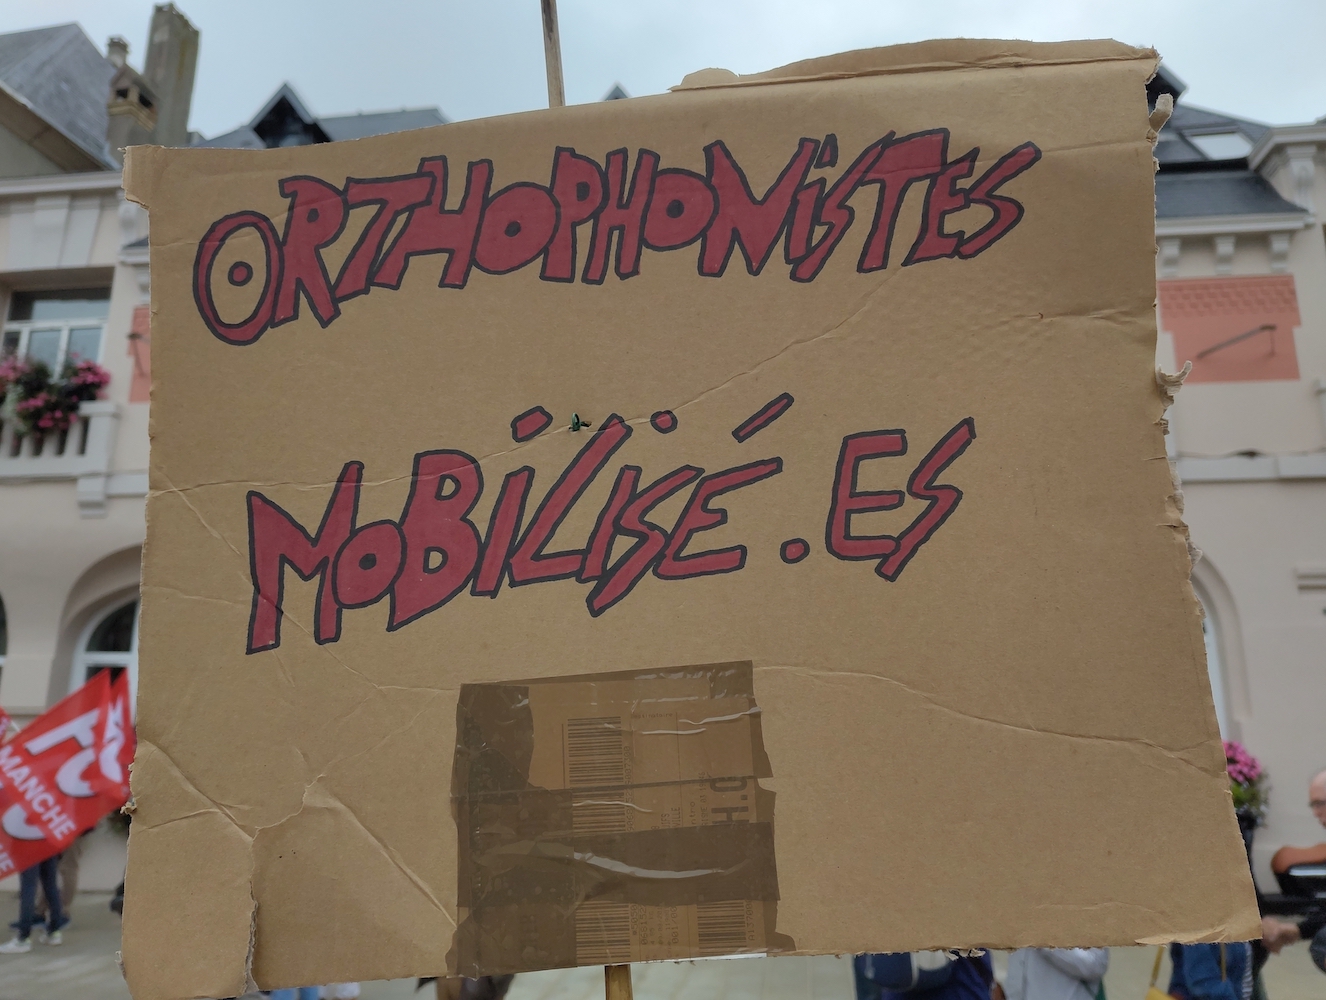 ORTHOPHONiSTES
MOBiLiSÉ.ES
MANCHE